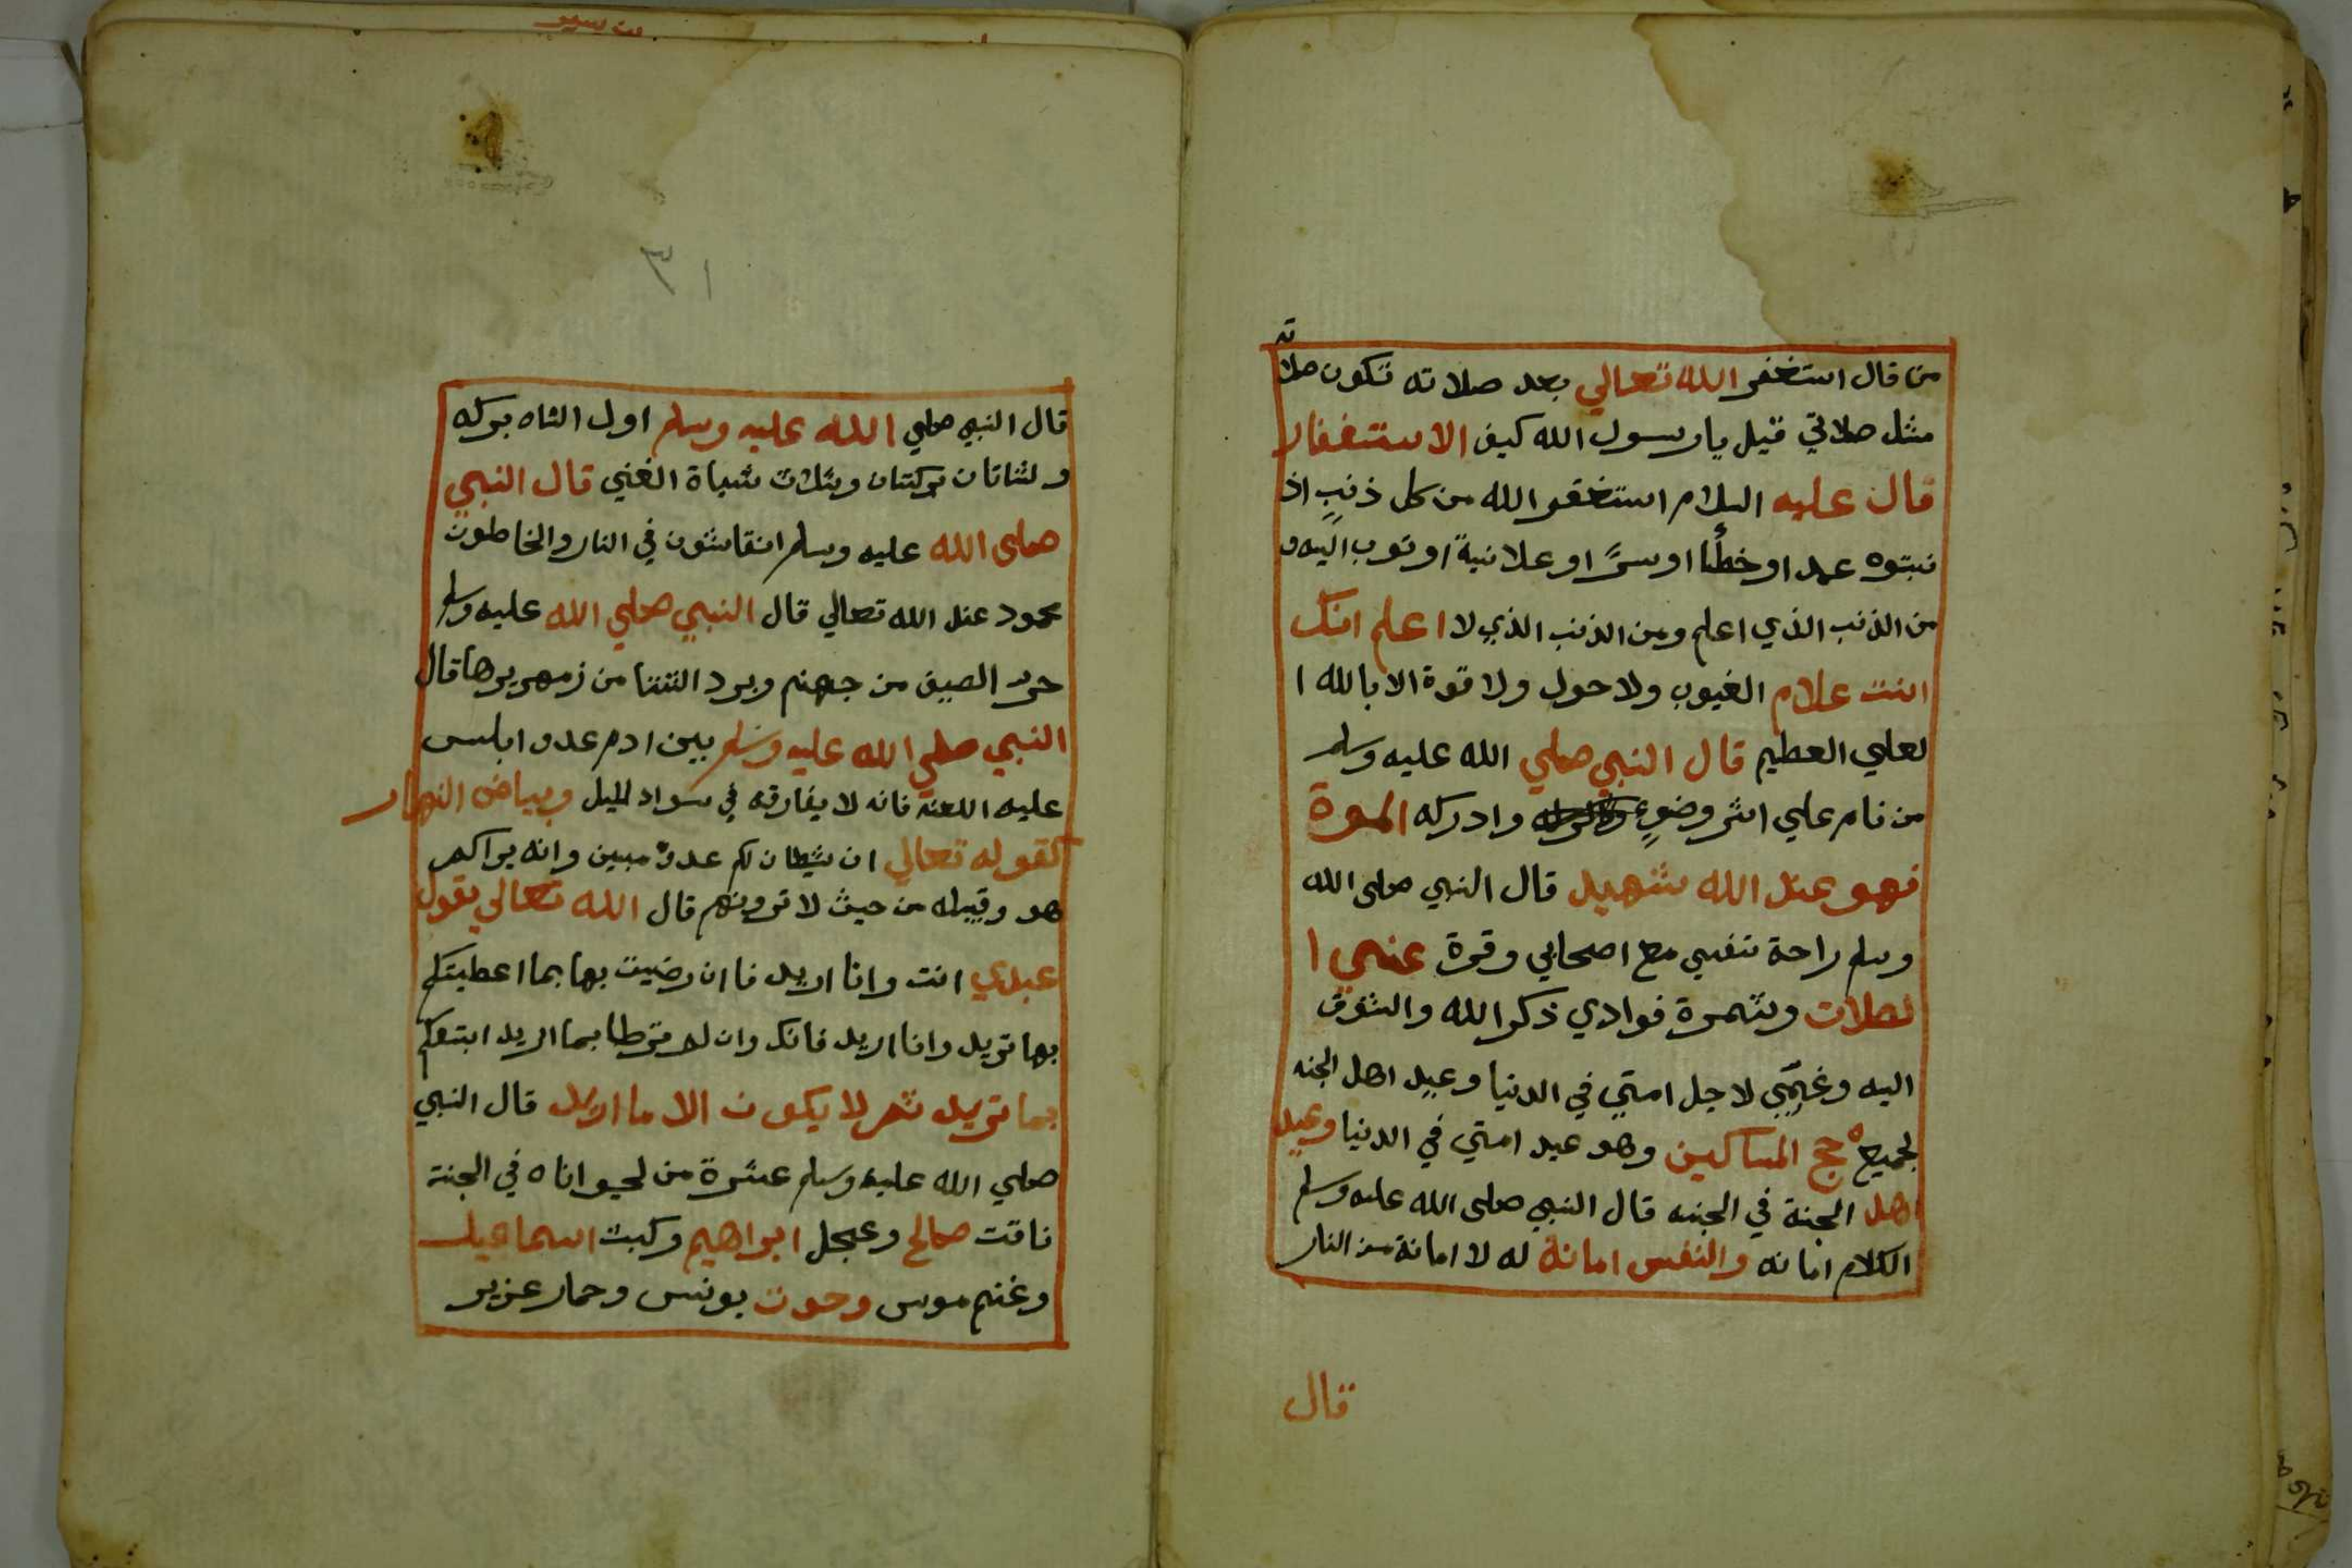 من قال استغفر الله تعالي بعد صلاته تكون صلاته
مثل صلاتي قيل يا رسول الله كيف الاستغفار
قال عليه السلام استغفر الله من كل ذنبٍ اذ
نبتوه عمد او خطأ او سرًّا او علانيةً او توب اليه و
من الذنب الذي اعلم ومن الذنب الذي لا اعلم انك
انت علام الغيوب ولا حول ولا قوة الا بالله ا
لعلي العطيم قال النبي صلي الله عليه وسلم
من نام علي اثر وضوءٍ وادركه الموة
فهو عند الله شهيد قال النبي صلى الله
وسلم راحة نفسي مع اصحابي وقرة عنيي ا
لصلات وثمرة فوادي ذكر الله والشوق
اليه وغمتي لاجل امتي في الدنيا وعيد اهل الجنه
لجميع حج المساكين وهو عيد امتي في الدنيا وعيد
اهل الجنة في الجنه قال النبي صلى الله عليه وسلم
الكلام امانه والنفس امانة له لا امانة من النار
قال
٣١
قال النبي صلي الله عليه وسلم اول الشاه بركه
ولشاتان بركتان وثلاث شياة الغني قال النبي
صلى الله عليه وسلم انقاشون في النار والخاطون
محمود عند الله تعالي قال النبي صلي الله عليه وسلم
حرد الصيف من جهنم وبرد الشتا من زمهريرها قال
النبي صلي الله عليه وسلم بين ادم عدو ابليس
عليه اللعنة فانه لا يفارقه في سواد الليل وبياض النهار
كقوله تعالي ان شيطان لكم عدو مبين وانه يراكم
هو وقبيله من حيث لا ترونهم قال الله تعالي يقول
عبدي انت وانا اريد فا ان رضيت بها بما اعطيتكم
بها تريد وانا اريد فانك وان لم ترطا بما اريد ابتعكم
بما تريد ثم لا يكون الا ما اريد قال النبي
صلي الله عليه وسلم عشرة من لحيواناه في الجنة
ناقت صالح وعجل ابراهيم وكبش اسماعيل
وغنم موس وحوت يونس وحمار عزير